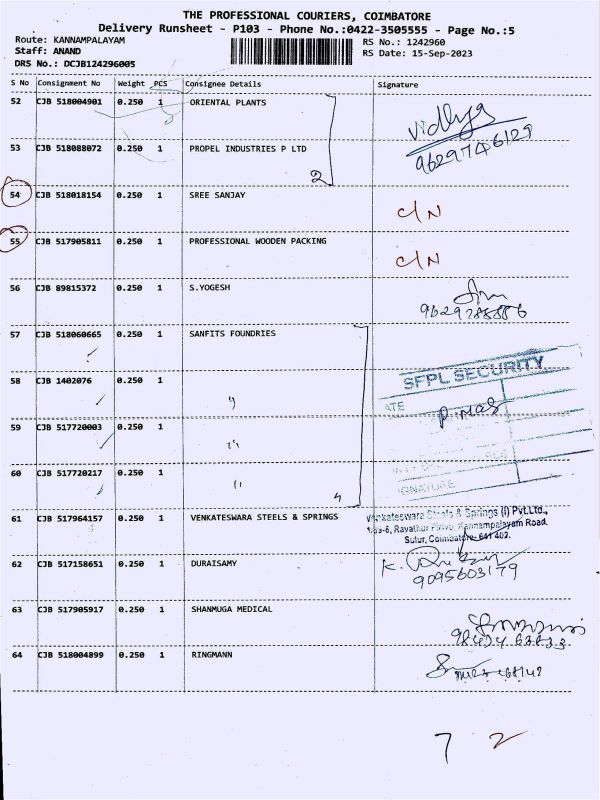 THE PROFESSIONAL COURIERS, COIMBATORE
Delivery Runsheet - P103 - Phone No.:0422-3505555 - Page No.:5
Route: KANNAMPALAYAM
RS No.: 1242960
Staff: ANAND
RS Date: 15-Sep-2023
DRS No.: DCJB124296005
S No Consignment No Weight PCS Consignee Details Signature
52 CJB 518004901 0.250 1 ORIENTAL PLANTS
Vidhya
9629746129
53 CJB 518088072 0.250 1 PROPEL INDUSTRIES P LTD
2
54 CJB 518018154 0.250 1 SREE SANJAY C/N
55 CJB 517905811 0.250 1 PROFESSIONAL WOODEN PACKING C/N
56 CJB 89815372 0.250 1 S.YOGESH
57 CJB 518060665 0.250 1 SANFITS FOUNDRIES
SFPL SECURITY
58 CJB 1402076 0.250 1 "
59 CJB 517720003 0.250 1 "
60 CJB 517720217 0.250 1 "
4
SIGNATURE
61 CJB 517964157 0.250 1 VENKATESWARA STEELS & SPRINGS
Venkateswara Steels & Springs (I) Pvt.Ltd.,
Kannampalayam Road.
Sulur, Coimbatore-641 402.
62 CJB 517158651 0.250 1 DURAISAMY
9095603179
63 CJB 517905917 0.250 1 SHANMUGA MEDICAL
64 CJB 518004899 0.250 1 RINGMANN
7 2